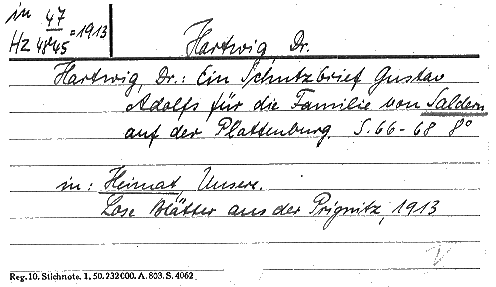 in 47
HZ 4845 = 1913
Hartwig, Dr.
Hartwig, Dr.: Ein Schutzbrief Gustav
Adolfs für die Familie von Saldern
auf der Plattenburg. S. 66-68 8°
in: Heimat, Unsere.
Lose Blätter aus der Prignitz, 1913
Reg. 10. Stichnote. 1. 50. 232000. A. 803. S. 4062.